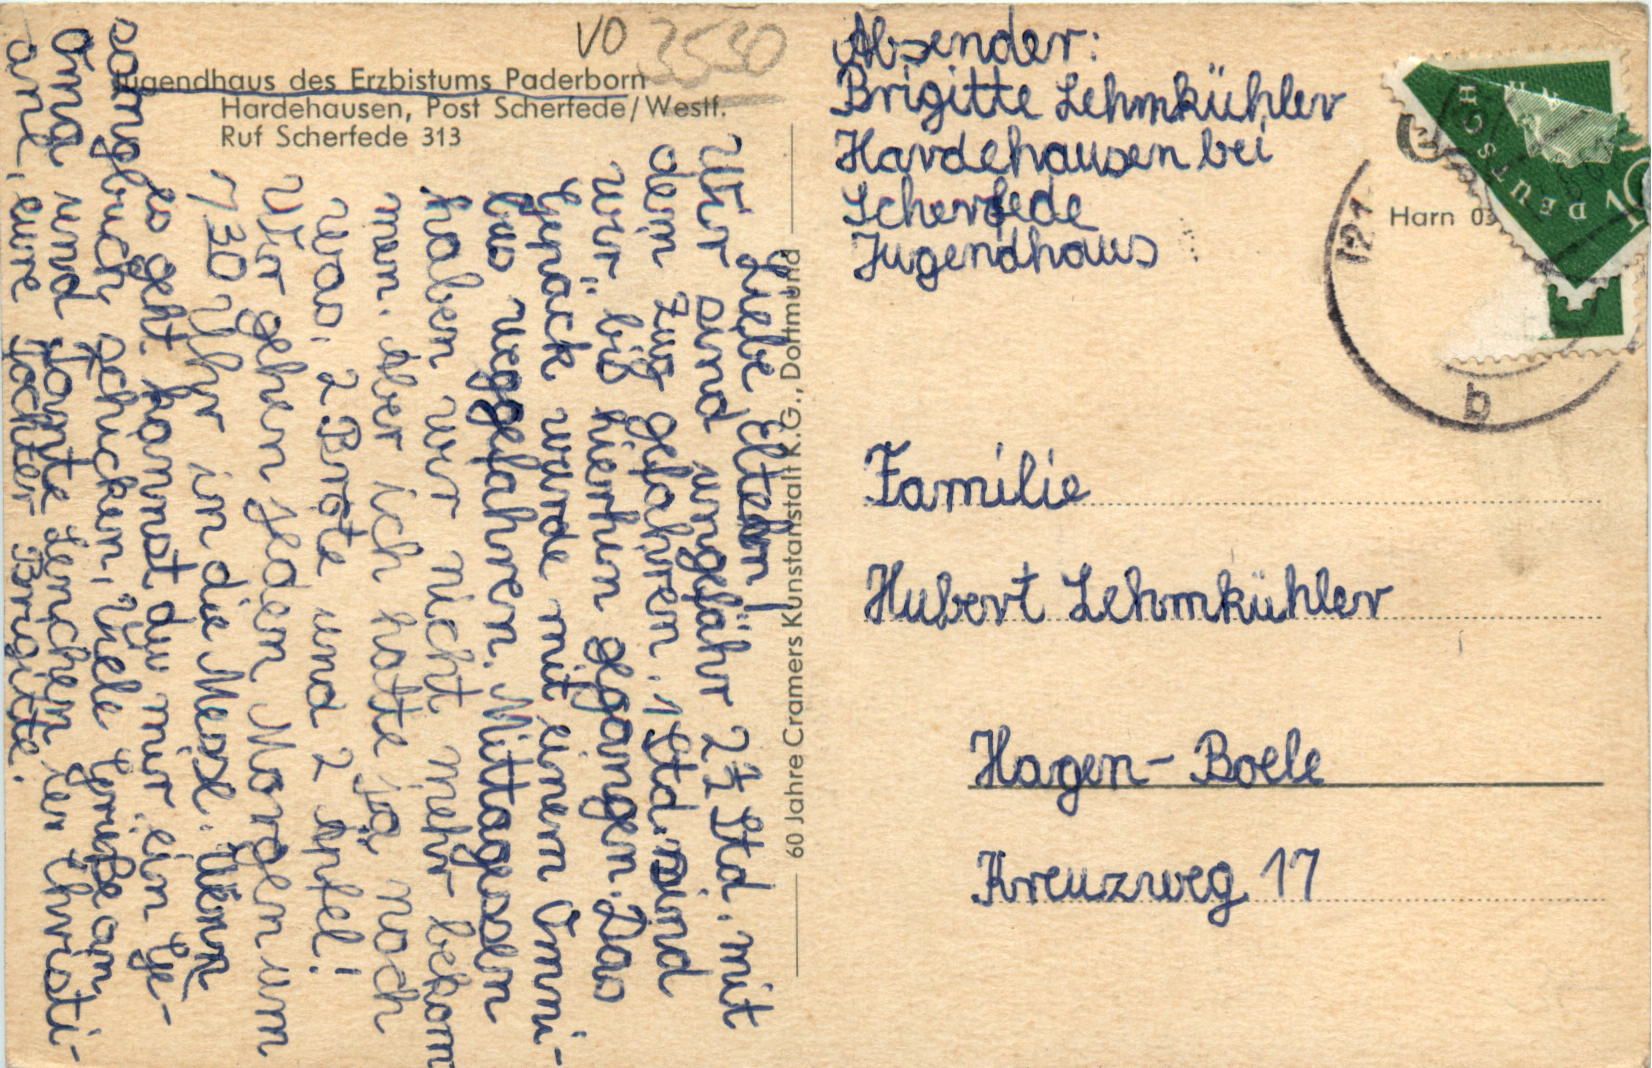 VO 3530
Jugendhaus des Erzbistums Paderborn
Hardehausen, Post Scherfede/Westf.
Ruf Scherfede 313
Liebe Eltern!
Wir sind ungefähr 2½ Std. mit
dem Zug gefahren. 1 Std. sind
wir bis hierhin gegangen. Das
Gepäck wurde mit einem Omni-
bus weggefahren. Mittagessen
haben wir nicht mehr bekom
men. Aber ich hatte ja noch
was. 2 Brote und 2 Äpfel!
Wir gehen jeden Morgen um
730 Uhr in die Messe. Wenn
es geht kannst du mir ein Ge-
sangbuch schicken. Viele Grüße an
Oma und Tante Lenchen, eure Christi-
ane, eure Tochter Brigitte.
60 Jahre Cramers Kunstanstalt K.G., Dortmund
Absender:
Brigitte Lehmkühler
Hardehausen bei
Scherfede
Jugendhaus
Harn 03
DEUTSCH
10
12.1
b
Familie
Hubert Lehmkühler
Hagen-Boele
Kreuzweg 17